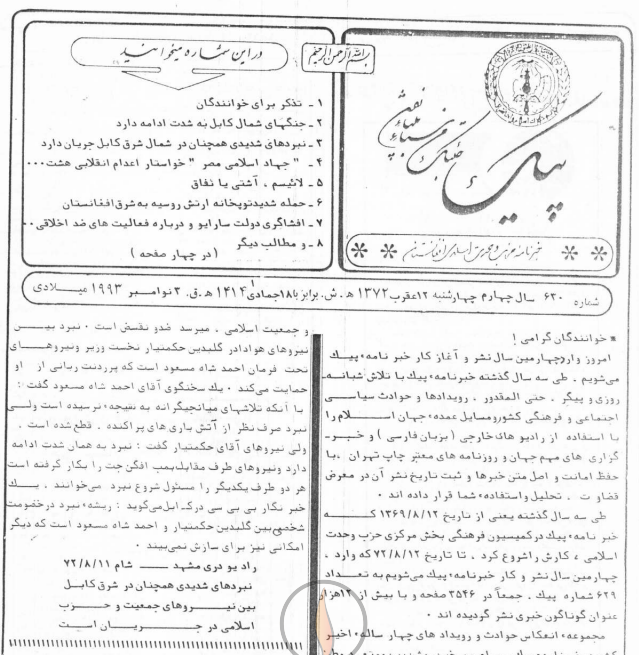 بسم الله الرحمن الرحیم
در این شماره میخوانید
۱ ـ تذکر برای خوانندگان
۲ ـ جنگهای شمال کابل به شدت ادامه دارد
۳ ـ نبردهای شدیدی همچنان در شمال شرق کابل جریان دارد
۴ ـ "جهاد اسلامی مصر" خواستار اعدام انقلابی هشت...
۵ ـ لائیسم ، آشتی یا نفاق
۶ ـ حمله شدید توپخانه ارتش روسیه به شرق افغانستان
۷ ـ افشاگری دولت سارایو و درباره فعالیت های ضد اخلاقی..
۸ ـ و مطالب دیگر
( در چهار صفحه )
پیک
خبرنامه حزب وحدت اسلامی افغانستان
شماره ۶۳۰ سال چهارم چهارشنبه ۱۲عقرب ۱۳۷۲ ه . ش. برابر با ۱۸جمادی۱ ۱۴۱۴ ه .ق. ۳نوامبر ۱۹۹۳ میلادی
* خوانندگان گرامی !
امروز وارد چهارمین سال نشر و آغاز کار خبر نامهٔ پیک
می‌شویم . طی سه سال گذشته خبرنامهٔ پیک با تلاش شبانه
روزی و پیگر . حتی المقدور . رویدادها و حوادث سیاسی
اجتماعی و فرهنگی کشور ومسایل عمدهٔ جهان اسلام را
با استفاده از رادیو های خارجی ( بزبان فارسی ) و خبر
گزاری های مهم جهان و روزنامه های معتبر چاپ تهران . با
حفظ امانت و اصل متن خبرها و ثبت تاریخ نشر آن در معرض
قضاوت . تحلیل واستفادهٔ شما قرار داده اند .
طی سه سال گذشته یعنی از تاریخ ۱۳۶۹/۸/۱۲ که
خبر نامهٔ پیک در کمیسیون فرهنگی بخش مرکزی حزب وحدت
اسلامی ، کارش را شروع کرد . تا تاریخ ۷۲/۸/۱۲ که وارد
چهارمین سال نشر و کار خبرنامهٔ پیک می‌شویم به تعداد
۶۲۹ شماره پیک . جمعاً در ۳۵۴۶ صفحه و با بیش از ۱۲هزار
عنوان گوناگون خبری نشر گردیده اند .
مجموعهٔ انعکاس حوادث و رویداد های چهار سالهٔ اخیر
و جمعیت اسلامی . میرسد ضد و نقیض است . نبرد بین
نیروهای هوادار گلبدین حکمتیار نخست وزیر ونیروهای
تحت فرمان احمد شاه مسعود است که پر ردنت ربانی از او
حمایت می‌کند . یک سخنگوی آقای احمد شاه مسعود گفت :
با آنکه تلاشهای میانجیگرانه به نتیجه نرسیده است ولی
نبرد صرف نظر از آتش باری های پراکنده . قطع شده است .
ولی نیروهای آقای حکمتیار گفت : نبرد به همان شدت ادامه
دارد ونیروهای طرف مقابل بمب افگن جت را بکار گرفته است
هر دو طرف یکدیگر را مسئول شروع نبرد می‌خوانند . یک
خبر نگار بی بی سی در کابل می‌گوید : ریشهٔ نبرد در خصومت
شخصی بین گلبدین حکمتیار و احمد شاه مسعود است که دیگر
امکانی نیز برای سازش نمی‌بیند .
رادیو دری مشهد ــــ شام ۷۲/۸/۱۱
نبردهای شدیدی همچنان در شرق کابل
بین نیروهای جمعیت و حزب
اسلامی در جریان است